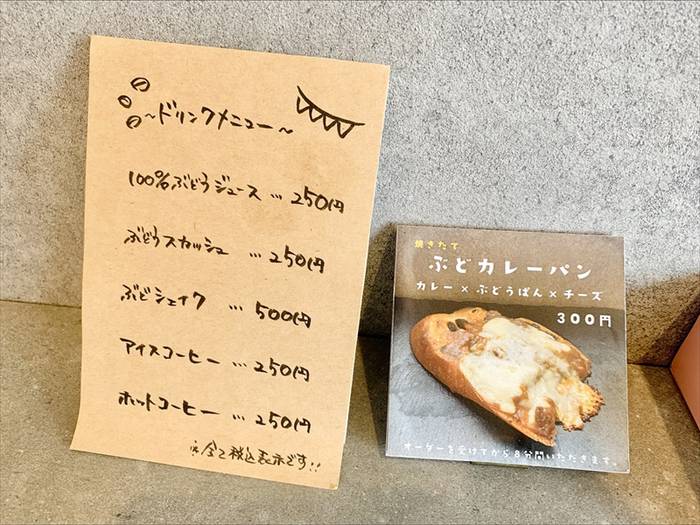 ~ドリンクメニュー~
100%ぶどうジュース … 250円
ぶどうスカッシュ … 250円
ぶどシェイク … 500円
アイスコーヒー … 250円
ホットコーヒー … 250円
※全て税込表示です!!
焼きたて
ぶどカレーパン
カレー × ぶどうぱん × チーズ
300円
オーダーを受けてから8分間いただきます。